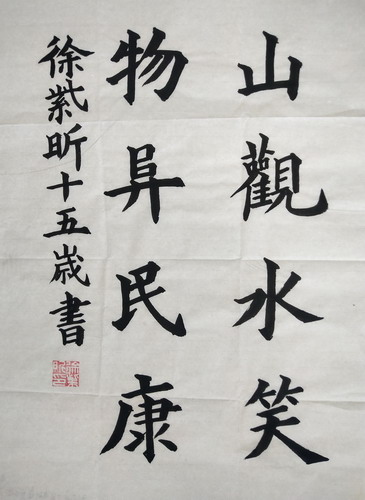 山觀水笑
物阜民康
徐紫昕十五嵗書